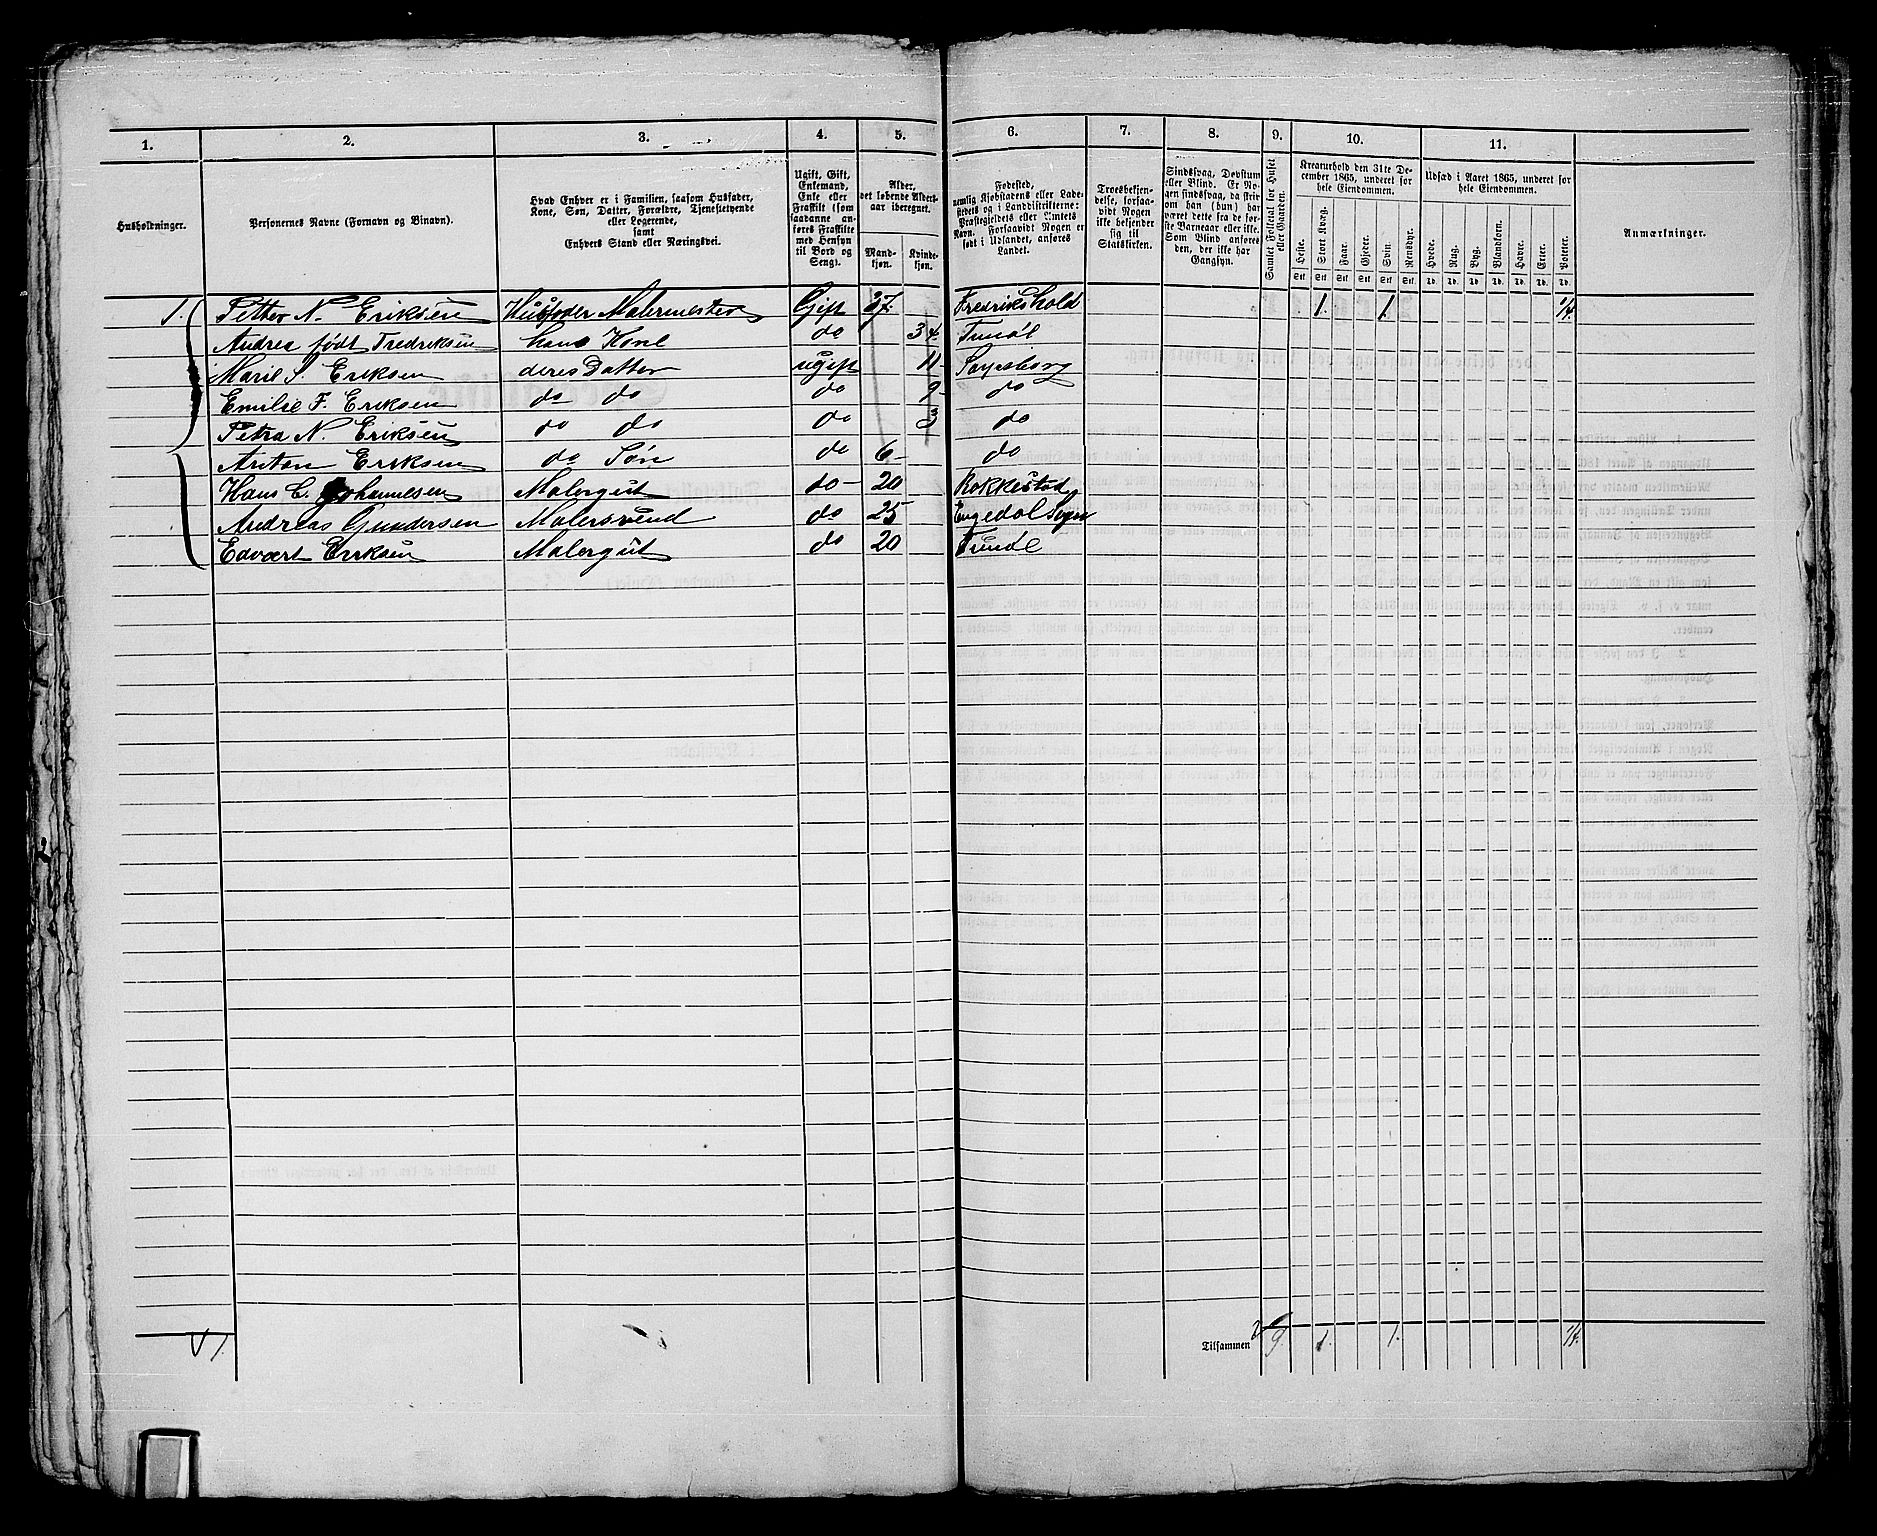 1. 2. 3. 4. 5. 6. 7. 8. 9. 10. 11.
Husholdninger.
Personernes Navne (Fornavn og Binavn).
Hvad Enhver er i Familien, saasom Husfader,
Kone, Søn, Datter, Forældre, Tjenestetyende
eller Logerende,
samt
Enhvers Stand eller Næringsvei.
Ugift, Gift,
Enkemand,
Enke eller
Fraskilt (som
saadanne an-
føres Fraskilte
med Hensyn
til Bord og
Seng).
Alder,
det løbende Alders-
aar iberegnet.
Mand-
kjøn.
Kvinde-
kjøn.
Fødested,
nemlig Kjøbstadens eller Lade-
stedets og i Landdistrikterne:
Præstegjeldets eller Amtets
Navn. Forsaavidt Nogen er
født i Udlandet, anføres
Landet.
Troesbekjen-
delse, forsaa-
vidt Nogen
ikke bekjender
sig til
Statskirken.
Sindssvag, Døvstum
eller Blind. Er No-
gen sindssvag, da skri-
ves om han (hun) har
været dette fra de før-
ste Barneaar eller ikke.
Som Blind anføres
den, der ikke har
Gangsyn.
Samlet Folketal for Huset
eller Gaarden.
Kreaturhold den 31te De-
cember 1865, underet for
hele Eiendommen.
Heste. Stort Kvæg. Faar. Gjeder. Sviin. Rensdyr.
Stk Stk Stk Stk Stk Stk
Udsæd i Aaret 1865, underet for
hele Eiendommen.
Hvede. Rug. Byg. Blandkorn. Havre. Erter. Poteter.
Td. Td. Td. Td. Td. Td. Td.
Anmærkninger.
1. Petter N. Eriksen Husfader Malermester Gift 37 Fredrikshold 1. 1. 1/4.
Andrea født Fredriksen hans Kone do 34 Tunøl
Marie S. Eriksen deres Datter ugift 11 Sarpsborg
Emilie F. Eriksen do do do 9 do
Petra N. Eriksen do do do 3 do
Anton Eriksen do Søn do 6 do
Hans C. Johannesen Malergut do 20 Rokkestad
Andreas Gundersen Malersvend do 25 Engedal Sogn
Edvært Eriksen Malergut do 20 Tunøl
1. Tilsammen 9. 1. 1. 1/4.